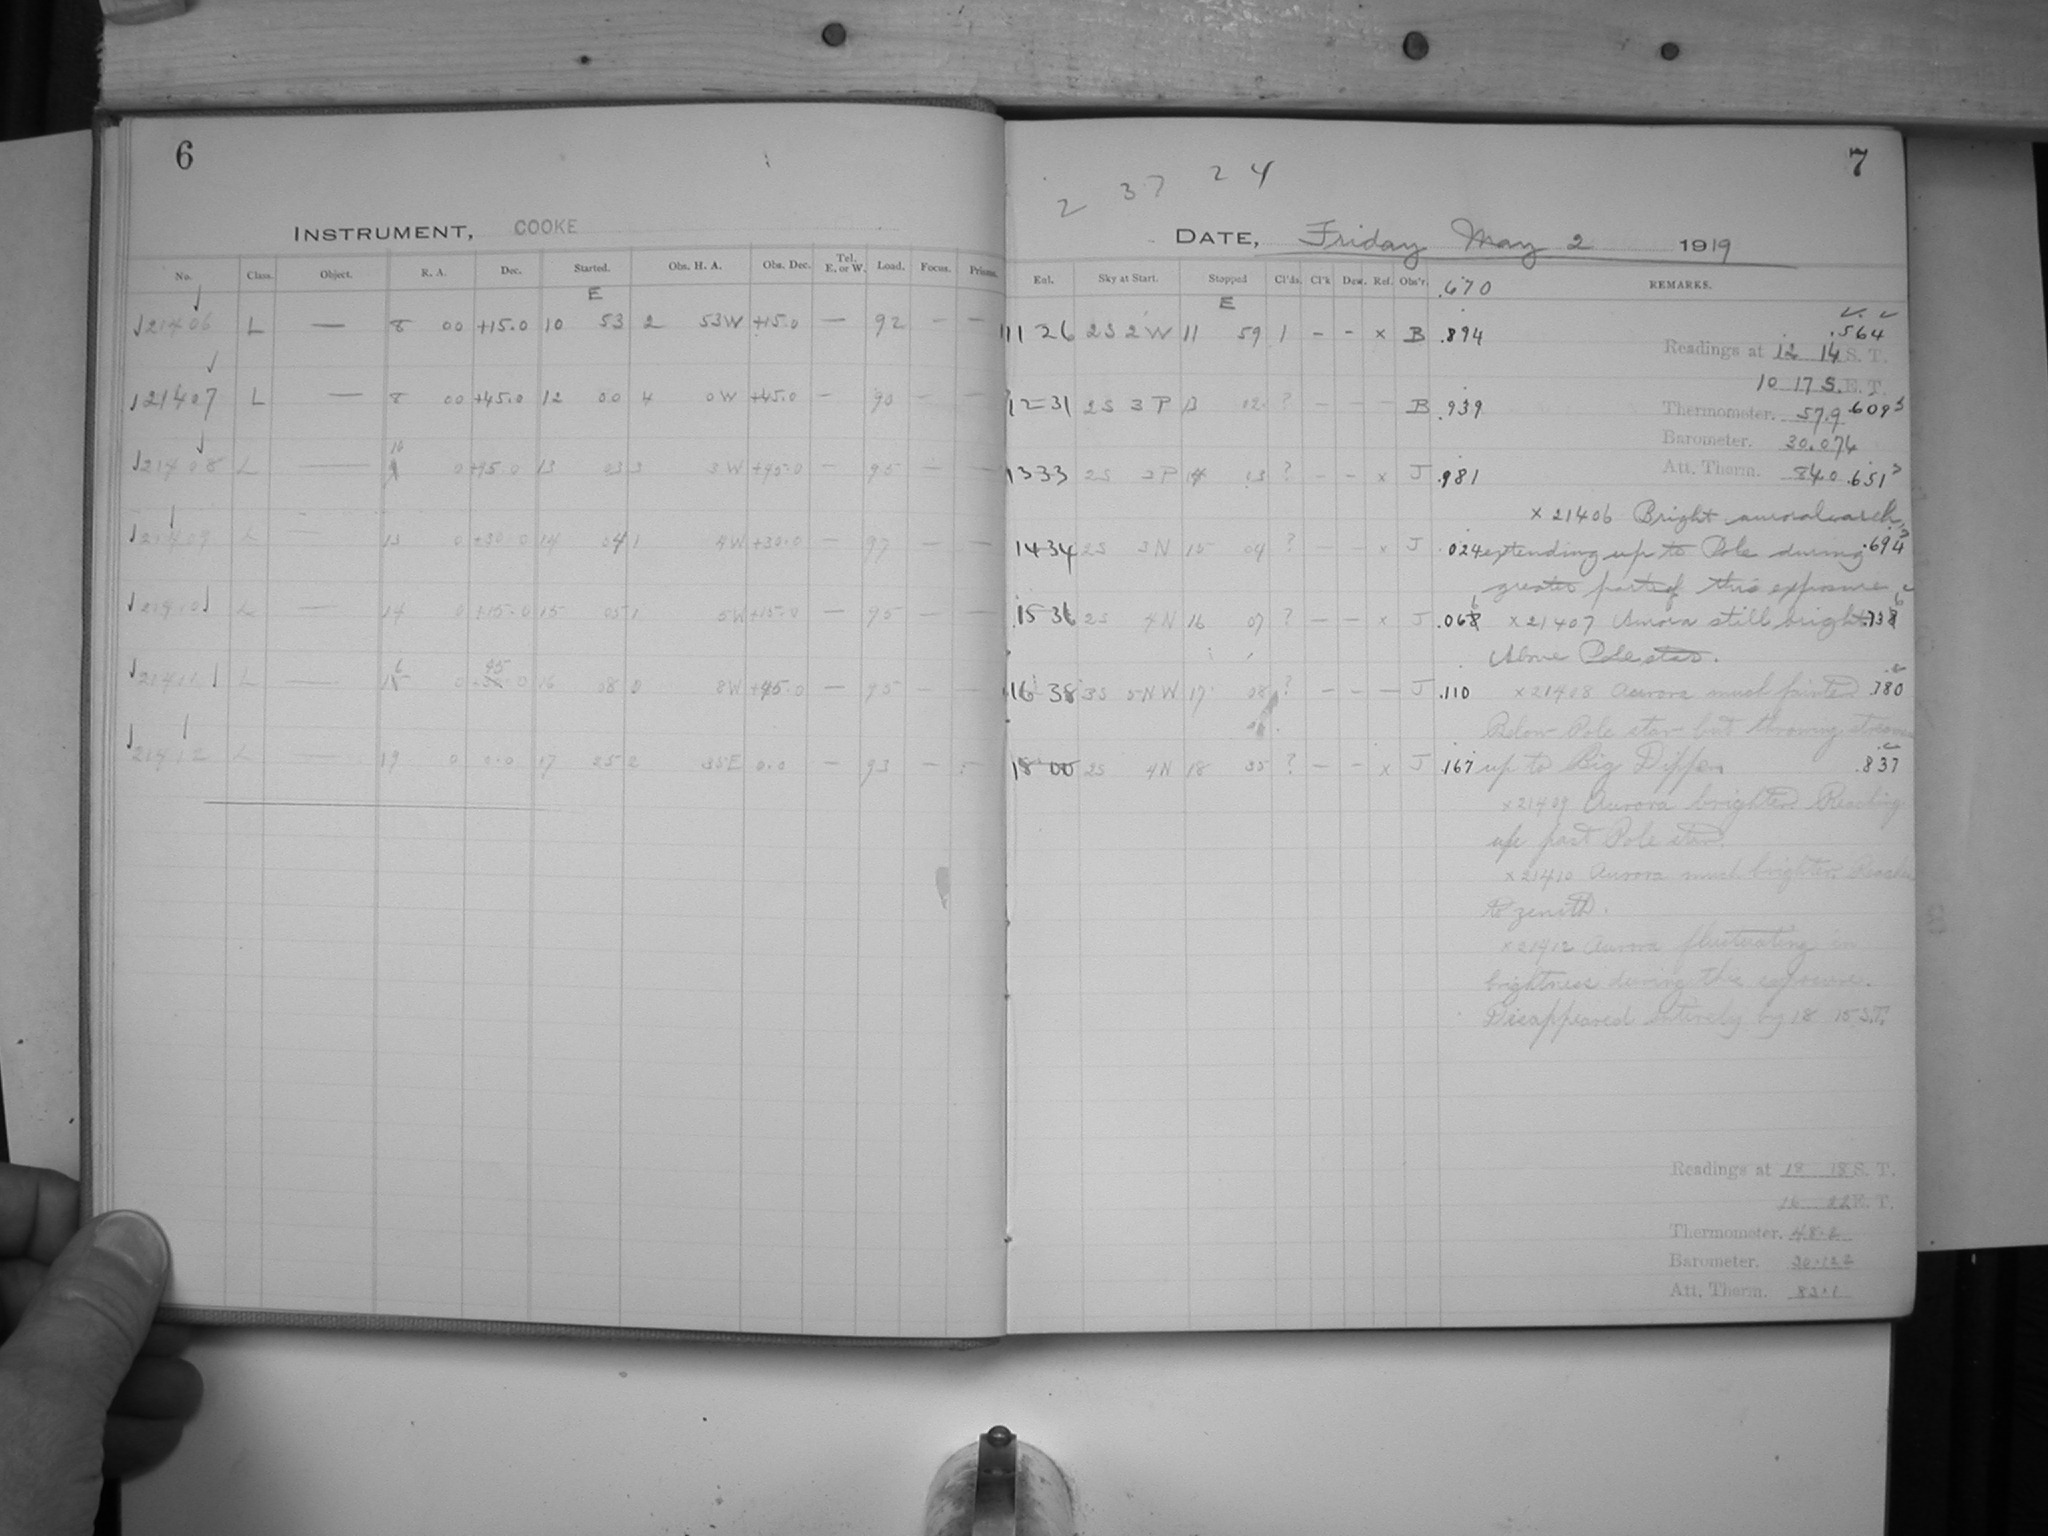 6
INSTRUMENT, COOKE
No. Class. Object. R. A. Dec. Started. Obs. H. A. Obs. Dec. Tel. E. or W. Load. Focus. Prisms.
E
21406 L — 8 00 +15.0 10 53 2 53W +15.0 — 92 — —
21407 L — 8 00 +45.0 12 00 4 0W +45.0 — 90 — —
21408 L — 10 0 +45.0 13 03 3 3W +45.0 — 95 — —
21409 L — 13 0 +30.0 14 04 1 4W +30.0 — 97 — —
21410 L — 14 0 +15.0 15 05 1 5W +15.0 — 95 — —
21411 L — 16 0 +45.0 16 08 0 8W +45.0 — 95 — —
21412 L — 19 0 0.0 17 25 2 35E 0.0 — 93 —
7
2 37 24
DATE, Friday May 2 1919
Enl. Sky at Start. Stopped Cl'ds. Cl'k Dew. Ref. Obs'r. .670 REMARKS.
E
11 26 2S 2W 11 59 1 – – x B .894
.564
Readings at 12 14 S. T.
10 17 S. E. T.
12 31 2S 3P 13 02 ? – – – B .939
Thermometer. 57.9 .609
Barometer. 30.074
13 33 2S 3P 14 03 ? – – x J .981
Att. Therm. 84.0 .651
x 21406 Bright auroral arch
14 34 2S 3N 15 04 ? – – x J .024 extending up to Pole during .694
greater part of this exposure
15 36 2S 4N 16 07 ? – – x J .066 x 21407 Aurora still bright .736
Above Pole star.
16 38 3S 5NW 17 08 ? – – – J .110 x 21408 Aurora much fainter .780
Below Pole star but throwing streamers
18 00 2S 4N 18 35 ? – – x J .167 up to Big Dipper .837
x 21409 Aurora brighter Reaching
up past Pole star.
x 21410 Aurora much brighter. Reaches
to zenith.
x 21412 Aurora fluctuating in
brightness during the exposure.
Disappeared entirely by 18 15 S.T.
Readings at 18 18 S. T.
16 22 E. T.
Thermometer. 48.2
Barometer. 30.122
Att. Therm. 83.1